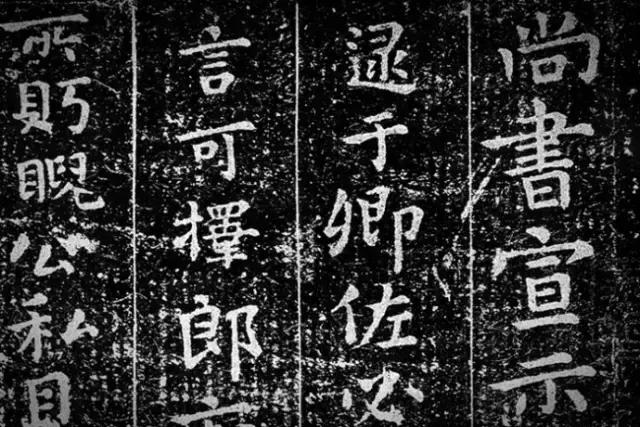 尚書宣示
逮于卿佐必
言可擇郎
所盱睨公私